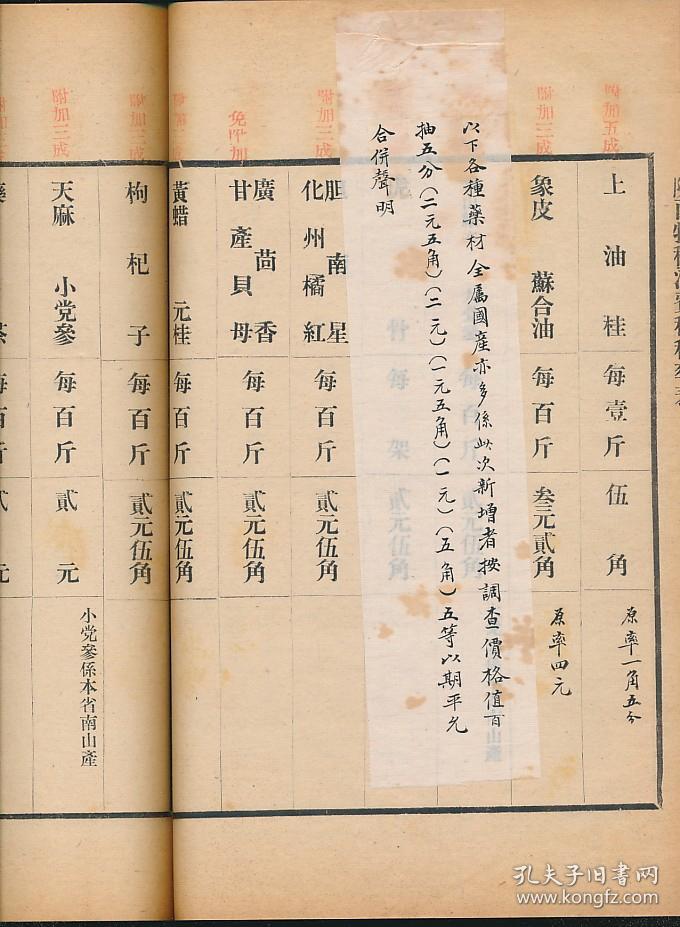 附加五成
上油桂 每壹斤 伍角
原率一角五分
附加三成
象皮 蘇合油 每百斤 叁元貳角
原率四元
以下各種藥材全属國産亦多係此次新增者按調查價格值百
抽五分(二元五角)(二元)(一元五角)(一元)(五角)五等以期平允
合併聲明
每架 貳元伍角
附加三成
胆南星
化州橘紅 每百斤 貳元伍角
免附加
廣茴香
甘產貝母 每百斤 貳元伍角
黃蜡 元桂 每百斤 貳元伍角
附加三成
枸杞子 每百斤 貳元伍角
附加三成
天麻 小党參 每百斤 貳元
小党參係本省南山產
孔夫子旧书网
www.kongfz.com